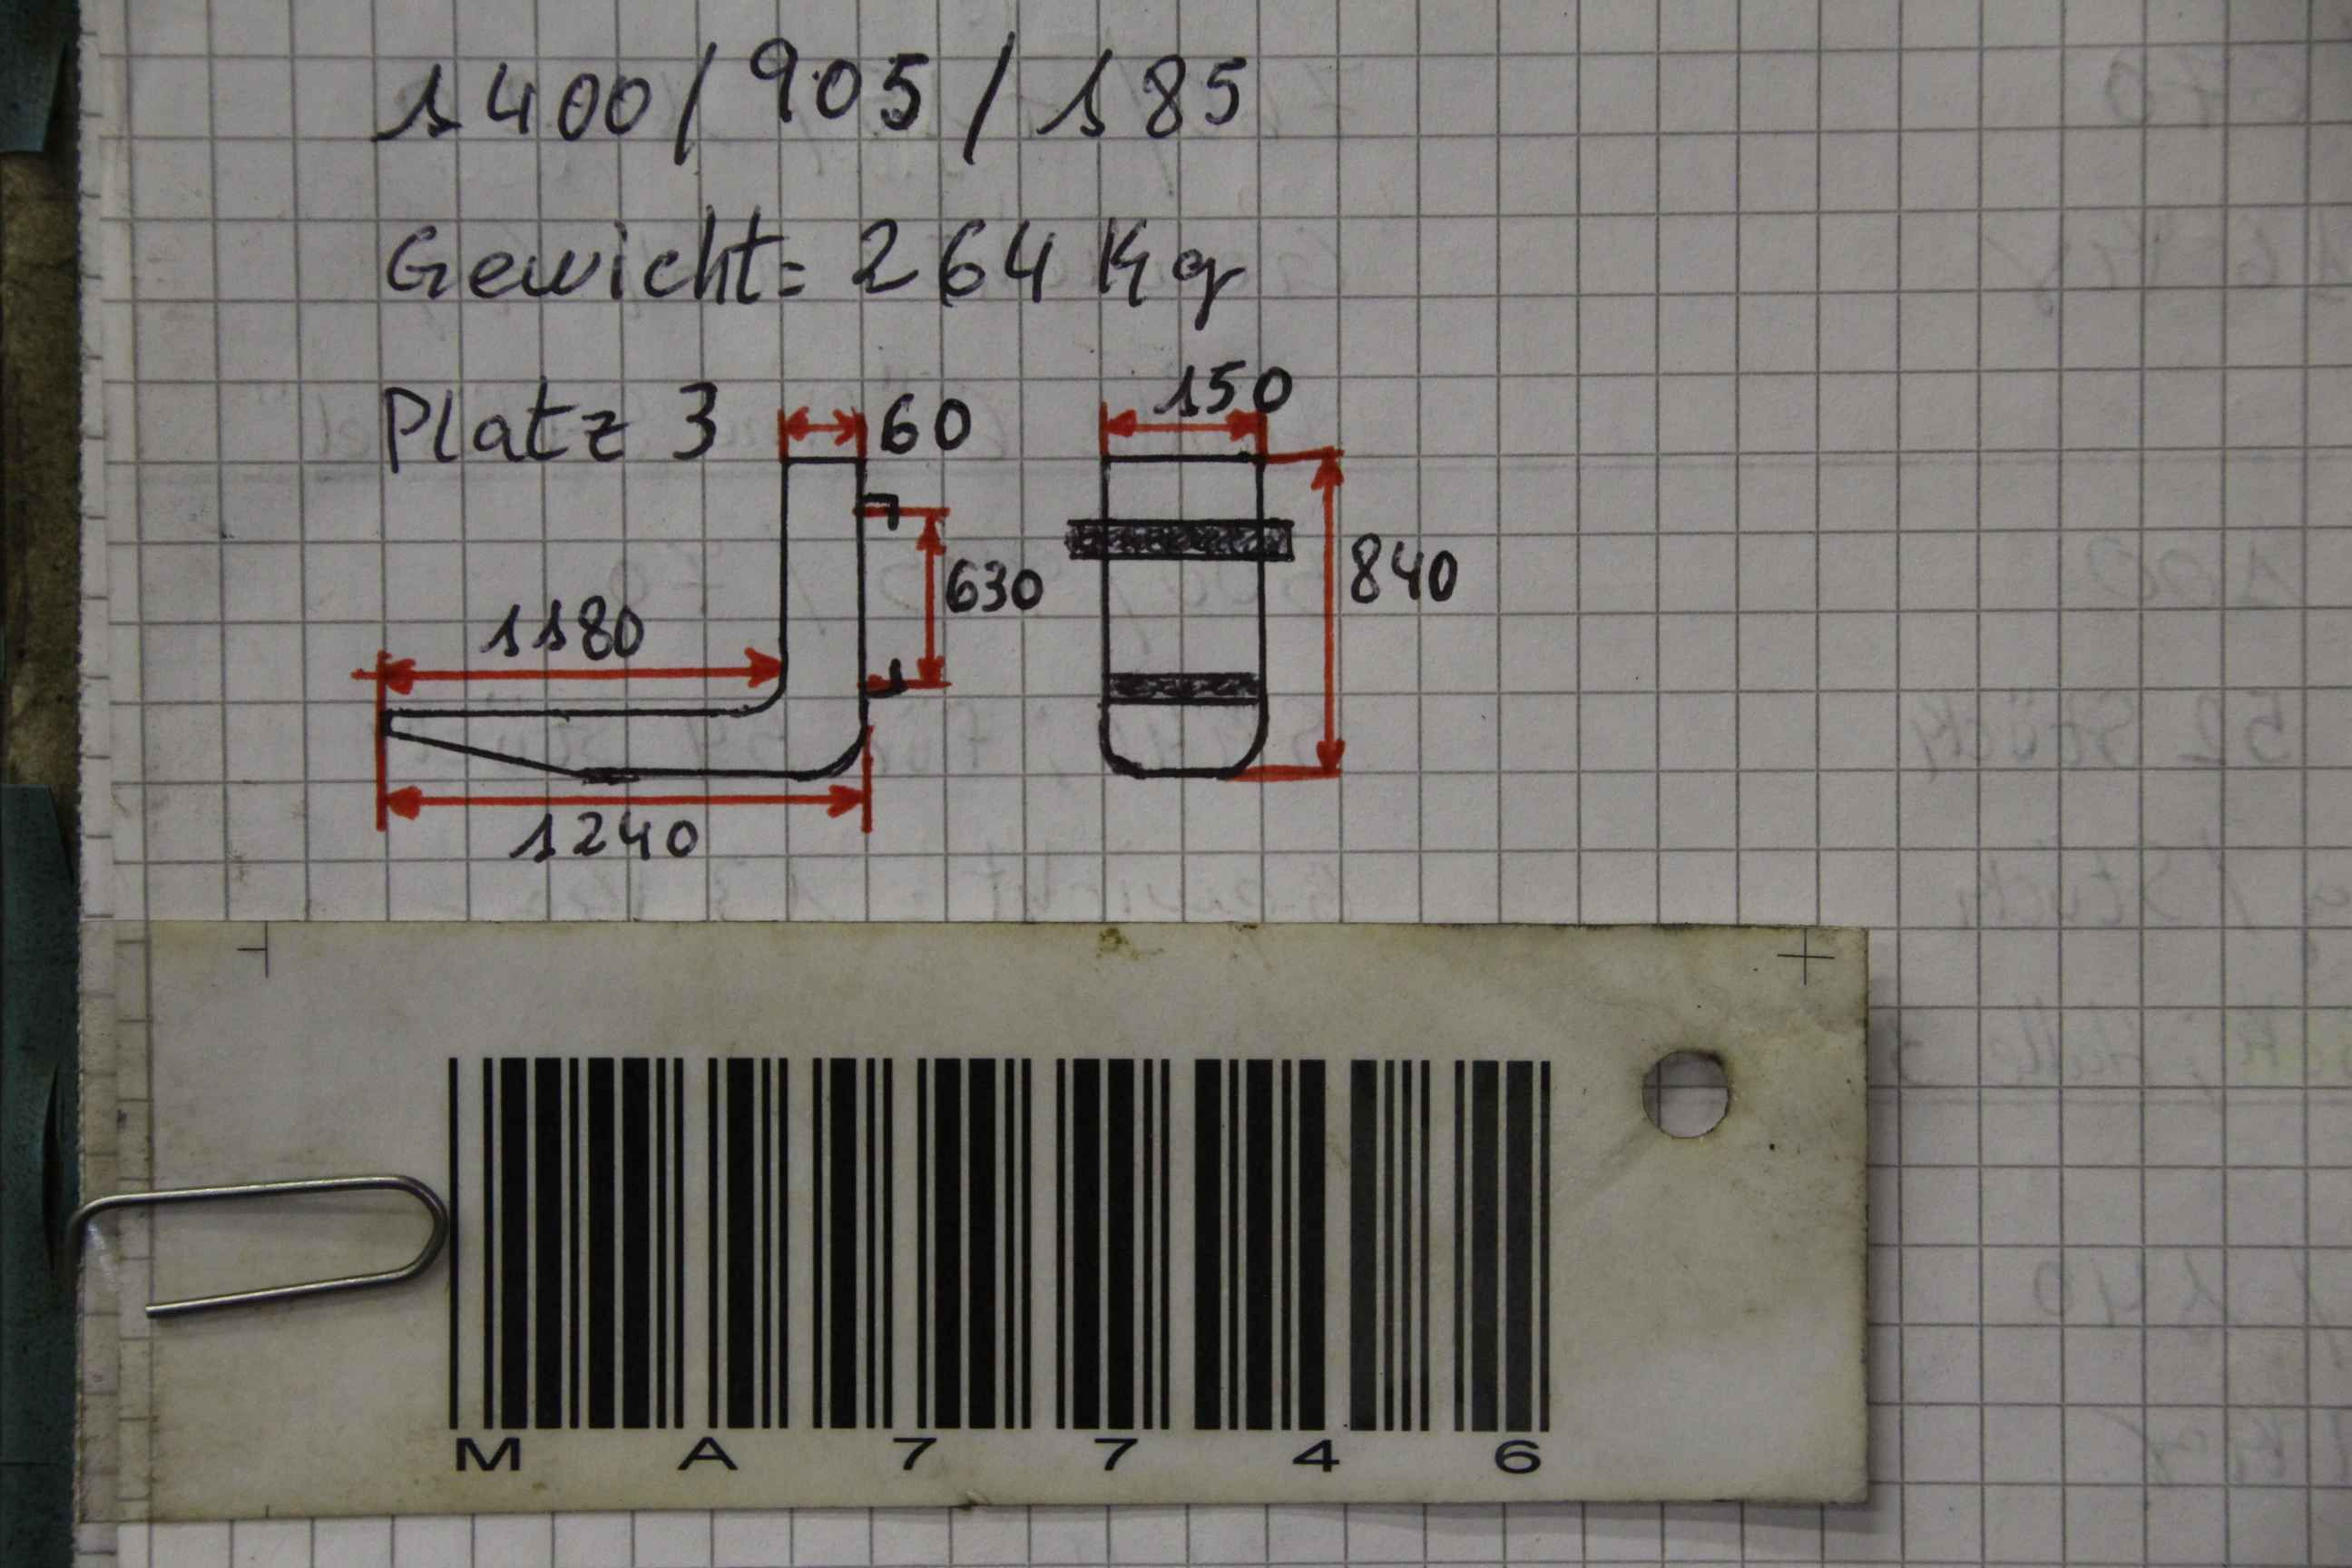 1400/905/185
Gewicht= 264 Kg
Platz 3
60
150
630
840
1180
1240
MA7746